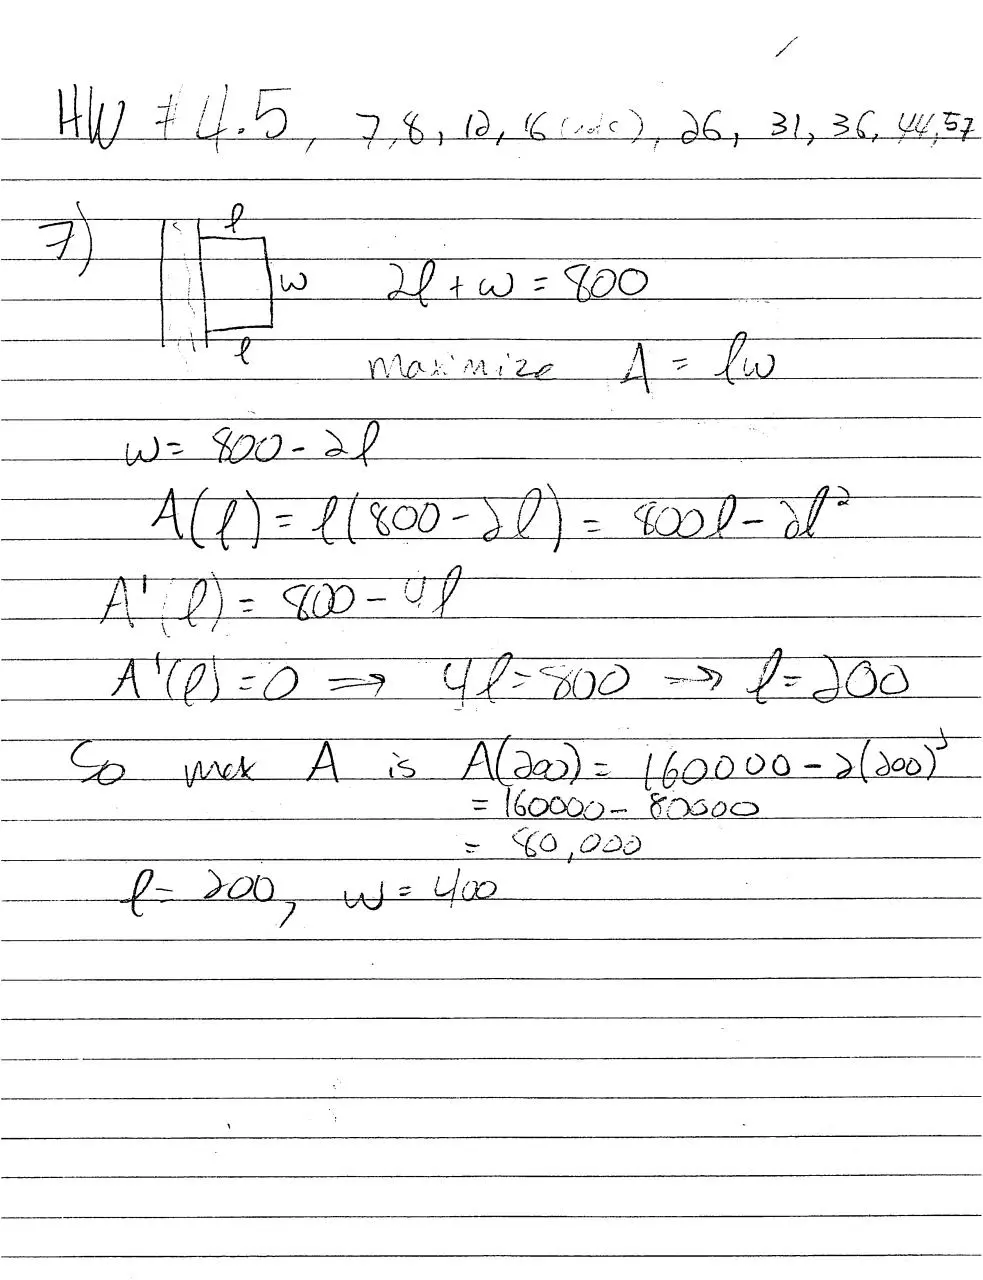 HW # 4.5, 7, 8, 12, 16, 26, 31, 36, 44, 57
7)
l
w 2l + w = 800
l
maximize A = lw
w = 800 - 2l
A(l) = l(800 - 2l) = 800l - 2l²
A'(l) = 800 - 4l
A'(l) = 0 ⇒ 4l = 800 ⇒ l = 200
So max A is A(200) = 160000 - 2(200)²
= 160000 - 80000
= 80,000
l = 200, w = 400